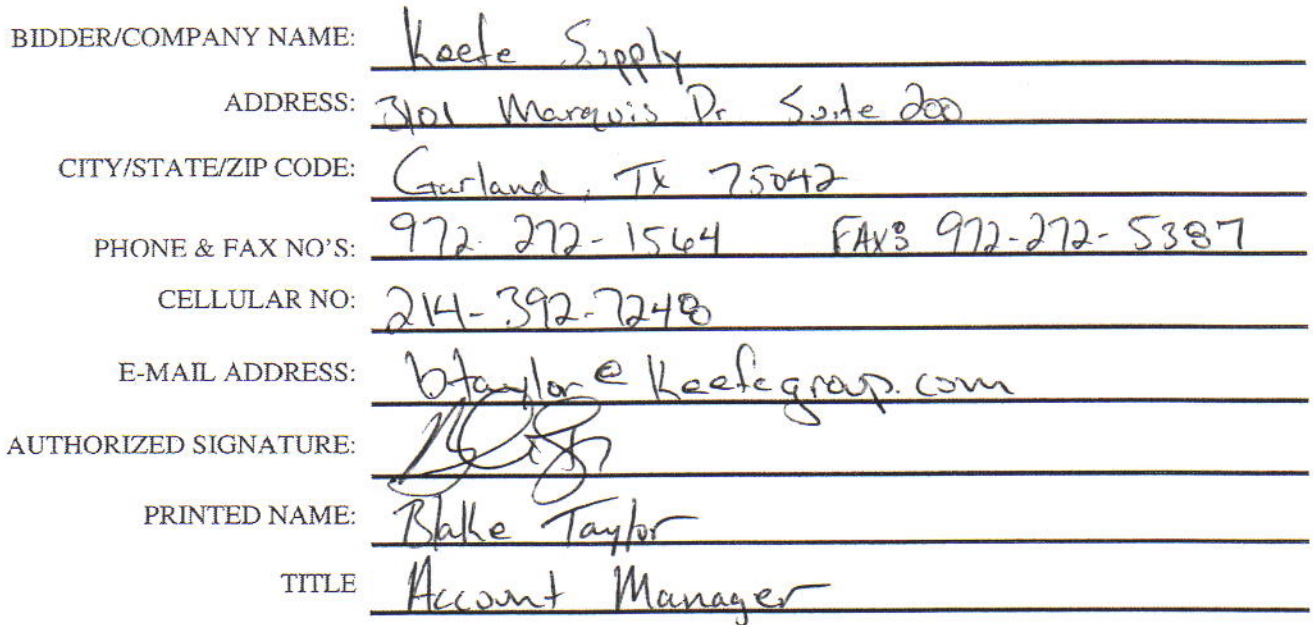 BIDDER/COMPANY NAME: Keefe Supply
ADDRESS: 3101 Marquis Dr Suite 200
CITY/STATE/ZIP CODE: Garland, TX 75042
PHONE & FAX NO'S: 972-272-1564 FAX: 972-272-5387
CELLULAR NO: 214-392-7248
E-MAIL ADDRESS: btaylor@keefegroup.com
AUTHORIZED SIGNATURE:
PRINTED NAME: Blake Taylor
TITLE Account Manager